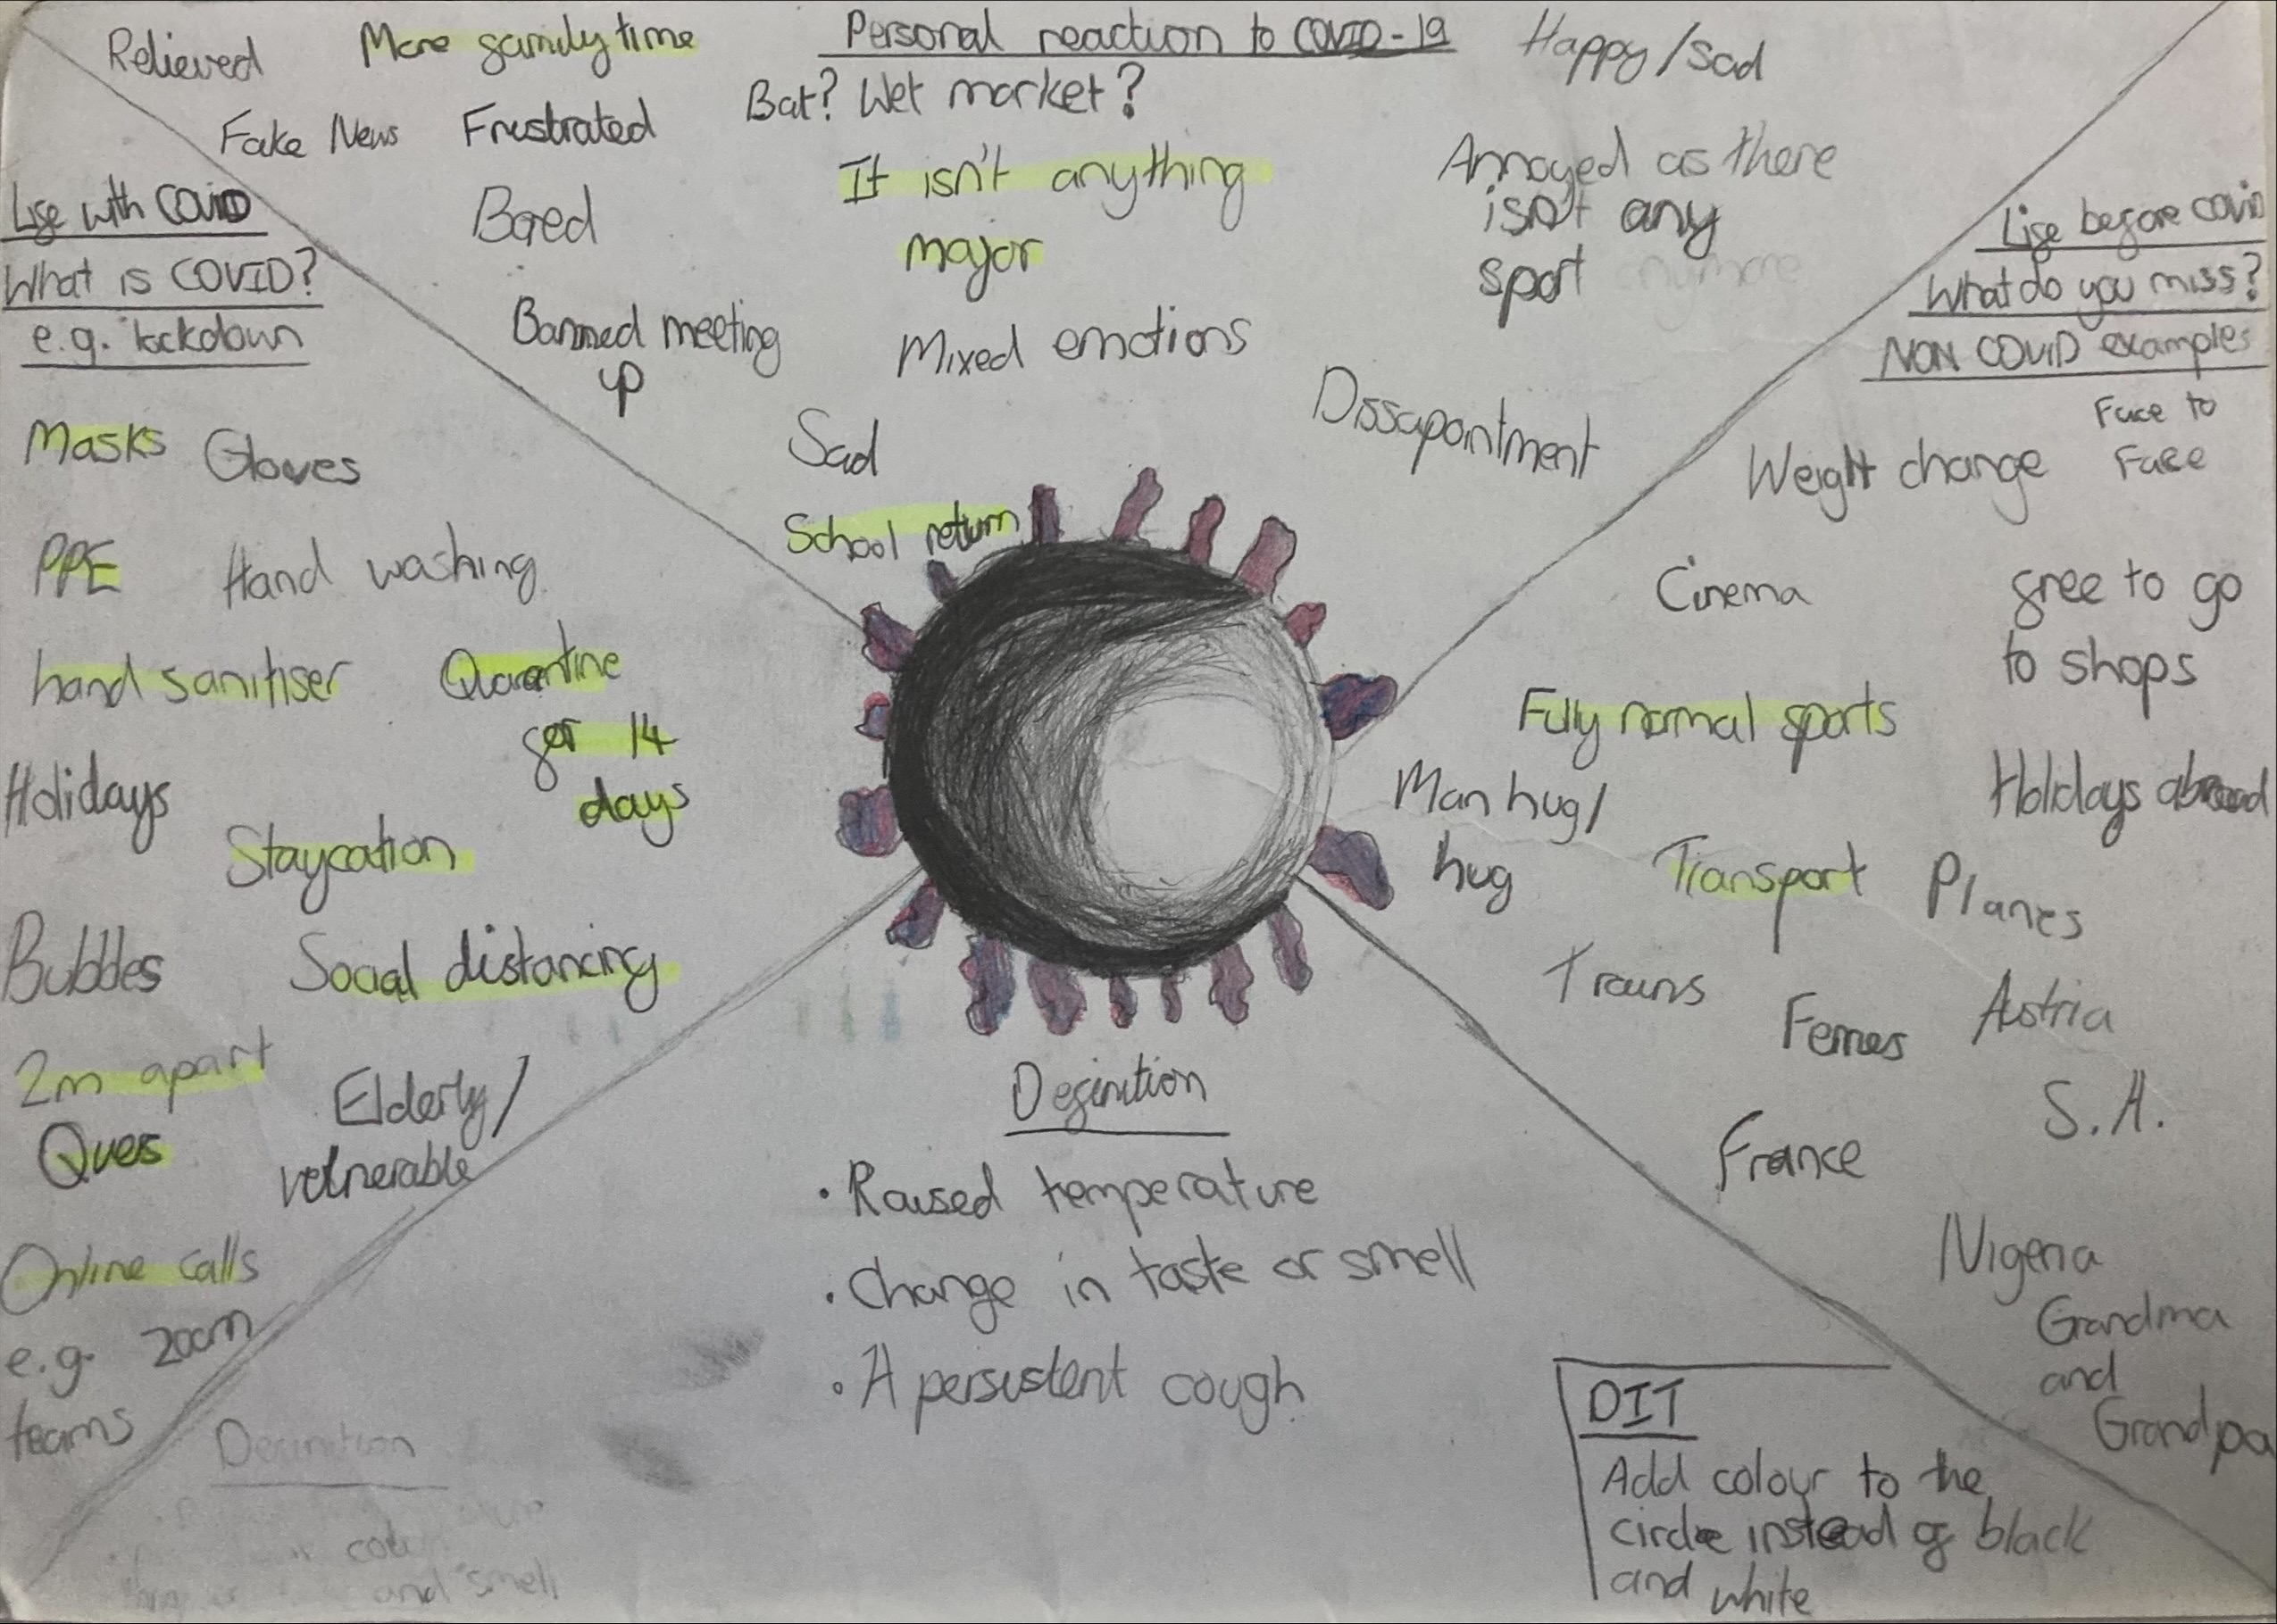 Personal reaction to COVID-19
Relieved
More family time
Happy/Sad
Bat? Wet market?
Fake News
Frustrated
It isn't anything
major
Annoyed as there
isn't any
sport anymore
Bored
Banned meeting
up
Mixed emotions
Dissapointment
Sad
School return
Life with COVID
What is COVID?
e.g. lockdown
Masks
Gloves
PPE
Hand washing
hand sanitiser
Quarantine
for 14
days
Holidays
Staycation
Bubbles
Social distancing
2m apart
Ques
Elderly/
vulnerable
Online calls
e.g. zoom
teams
Life before covid
What do you miss?
NON COVID examples
Face to
Face
Weight change
Cinema
free to go
to shops
Fully normal sports
Man hug/
hug
Holidays abroad
Transport
Planes
Trains
Ferries
Austria
S.A.
France
Nigeria
Grandma
and
Grandpa
Definition
• Raised temperature
• Change in taste or smell
• A persistent cough
Definition
and smell
DIT
Add colour to the
circle instead of black
and white